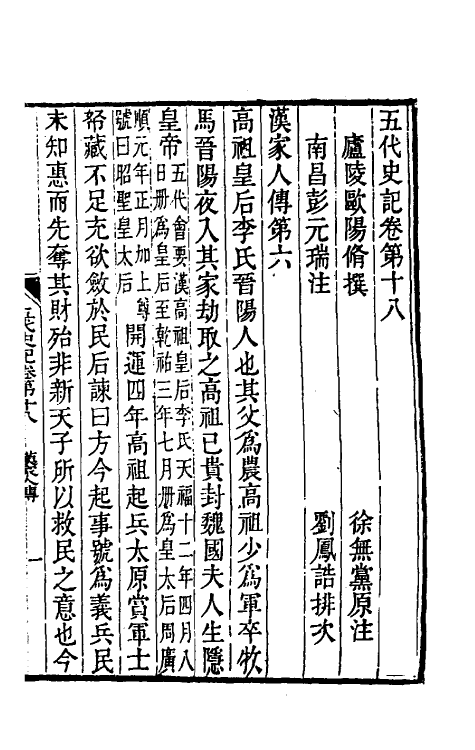 五代史記卷第十八
廬陵歐陽脩撰　徐無黨原注
南昌彭元瑞注　劉鳳誥排次
漢家人傳第六
高祖皇后李氏晉陽人也其父爲農高祖少爲軍卒牧
馬晉陽夜入其家劫取之高祖已貴封魏國夫人生隱
皇帝五代會要漢高祖皇后李氏天福十二年四月八
日册爲皇后至乾祐三年七月册爲皇太后周廣
順元年正月加上尊
號曰昭聖皇太后開運四年高祖起兵太原賞軍士
帑藏不足充欲斂於民后諫曰方今起事號爲義兵民
未知惠而先奪其財殆非新天子所以救民之意也今
五代史記卷第十八　漢家人傳　一